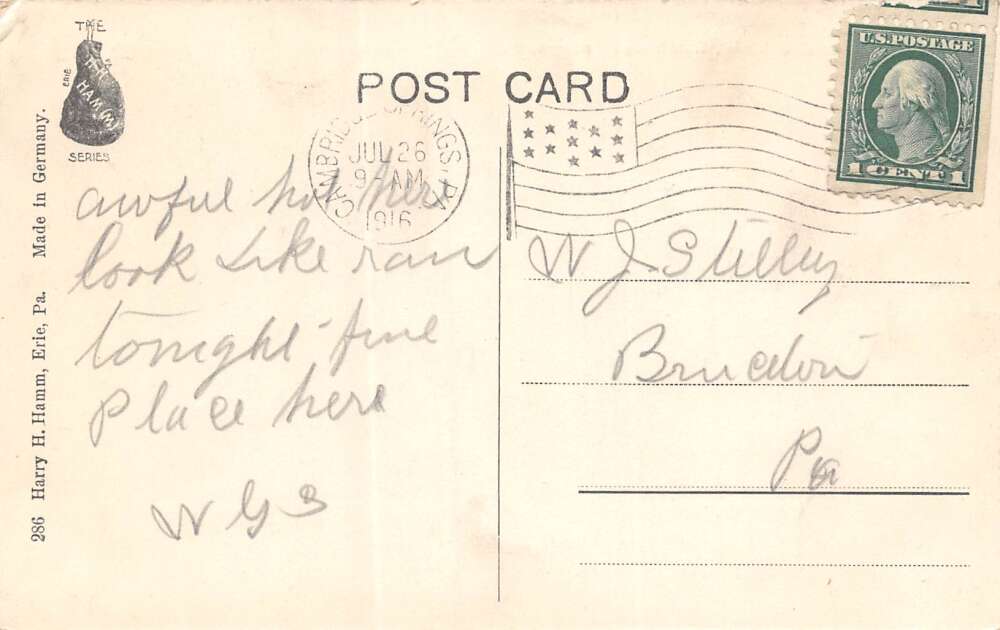 THE
ERIE
H.H.
HAMM
SERIES
POST CARD
U.S. POSTAGE
1 CENT 1
CAMBRIDGE SPRINGS PA
JUL 26
9-AM
1916
awful hot here
look Like rain
tonight fine
Place here
W G S
W J Stilley
Pa
286 Harry H. Hamm, Erie, Pa. Made in Germany.